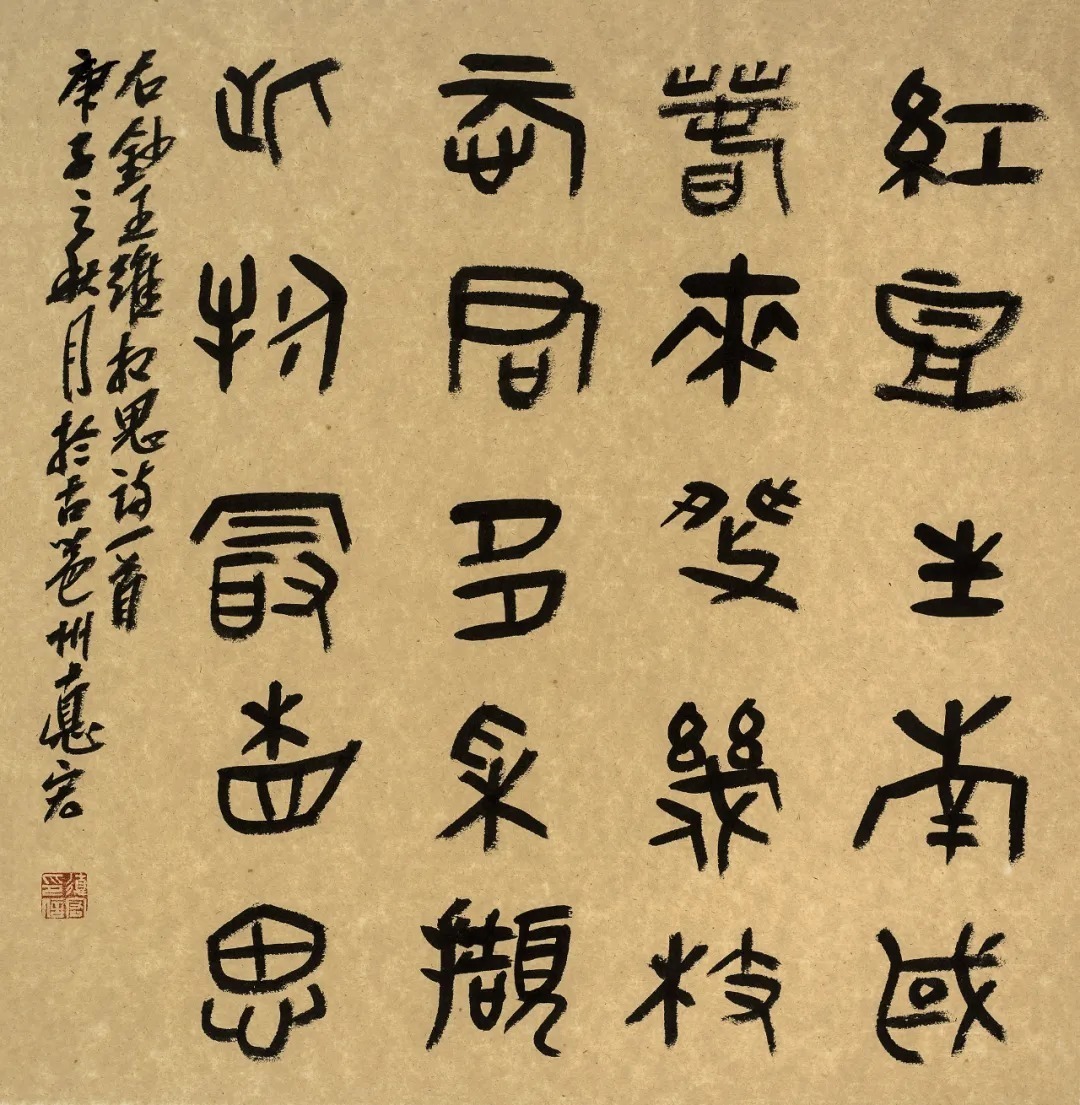 紅豆生南國
春來發幾枝
願君多采擷
此物最相思
右鈔王維相思詩一首
庚子之秋月於古邕州惪宏